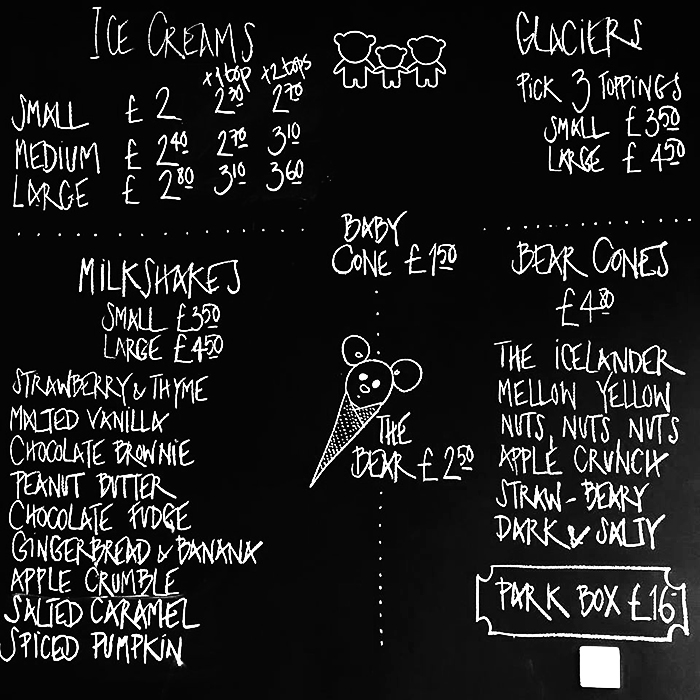 ICE CREAMS
+1 top +2 tops
SMALL £ 2 2.30 2.70
MEDIUM £ 2.40 2.70 3.10
LARGE £ 2.80 3.10 3.60
GLACIERS
PICK 3 TOPPINGS
SMALL £3.50
LARGE £4.50
MILKSHAKES
SMALL £3.50
LARGE £4.50
STRAWBERRY & THYME
MALTED VANILLA
CHOCOLATE BROWNIE
PEANUT BUTTER
CHOCOLATE FUDGE
GINGERBREAD & BANANA
APPLE CRUMBLE
SALTED CARAMEL
SPICED PUMPKIN
BABY
CONE £1.50
THE
BEAR £2.50
BEAR CONES
£4.80
THE ICELANDER
MELLOW YELLOW
NUTS, NUTS NUTS
APPLE CRUNCH
STRAW-BEARY
DARK & SALTY
PARK BOX £16